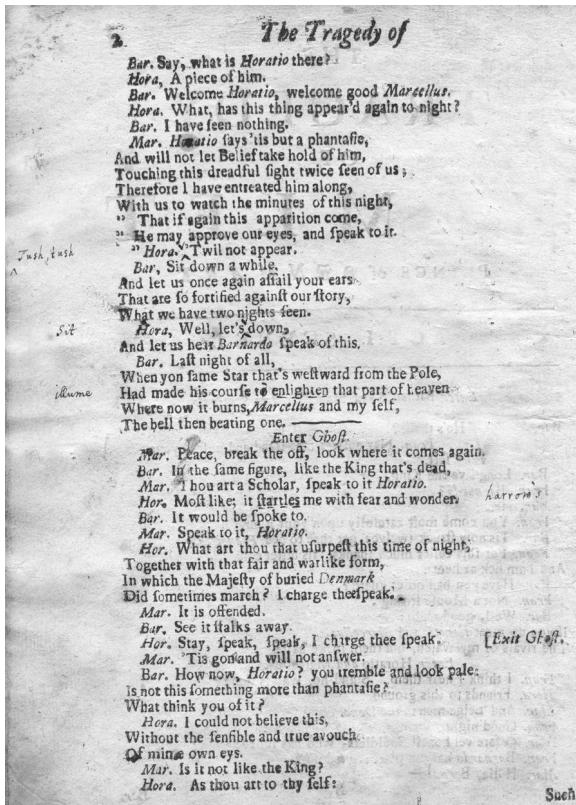 2 The Tragedy of
Bar. Say, what is Horatio there?
Hora, A piece of him.
Bar. Welcome Horatio, welcome good Marcellus.
Hora. What, has this thing appear'd again to night?
Bar. I have ſeen nothing.
Mar. Horatio ſays 'tis but a phantaſie,
And will not let Belief take hold of him,
Touching this dreadful ſight twice ſeen of us;
Therefore I have entreated him along,
With us to watch the minutes of this night,
" That if again this apparition come,
" He may approve our eyes, and ſpeak to it.
Tush, tush " Hora. 'Twil not appear.
Bar, Sit down a while,
And let us once again aſſail your ears
That are ſo fortified againſt our ſtory,
What we have two nights ſeen.
Sit Hora, Well, let's down,
And let us hear Barnardo ſpeak of this.
Bar. Laſt night of all,
When yon ſame Star that's weſtward from the Pole,
illume Had made his courſe to enlighten that part of Heaven
Where now it burns, Marcellus and my ſelf,
The bell then beating one.
Enter Ghoſt.
Mar. Peace, break the off, look where it comes again.
Bar. In the ſame figure, like the King that's dead,
Mar. Thou art a Scholar, ſpeak to it Horatio.
Hor. Moſt like; it ſtartles me with fear and wonder. harrow's
Bar. It would be ſpoke to.
Mar. Speak to it, Horatio.
Hor. What art thou that uſurpeſt this time of night,
Together with that fair and warlike form,
In which the Majeſty of buried Denmark
Did ſometimes march? I charge thee ſpeak.
Mar. It is offended.
Bar. See it ſtalks away.
Hor. Stay, ſpeak, ſpeak, I charge thee ſpeak. [Exit Ghoſt.
Mar. 'Tis gon and will not anſwer.
Bar. How now, Horatio? you tremble and look pale:
Is not this ſomething more than phantaſie?
What think you of it?
Hora. I could not believe this,
Without the ſenſible and true avouch
Of mine own eys.
Mar. Is it not like the King?
Hora. As thou art to thy ſelf:
Such